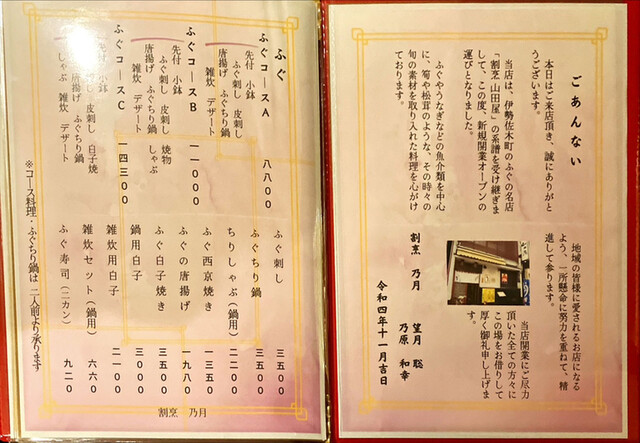 ごあんない
本日はご来店頂き、誠にありがと
うございます。
当店は、伊勢佐木町のふぐの名店
「割烹 山田屋」の系譜を受け継ぎま
して、この度、新規開業オープンの
運びとなりました。
ふぐやうなぎなどの魚介類を中心
に、筍や松茸のような、その時々の
旬の素材を取り入れた料理を心がけ
ております。
地域の皆様に愛されるお店になる
よう、一所懸命に努力を重ねて、精
進して参ります。
当店開業にご尽力
頂いた全ての方々に
この場をお借りして
厚く御礼申し上げま
す。
割烹 乃月 望月 聡
乃原 和幸
令和四年十一月吉日
ふぐ
ふぐコースA 八八〇〇
先付 小鉢
ふぐ刺し 皮刺し
唐揚げ ふぐちり鍋
雑炊 デザート
ふぐコースB 一一〇〇〇
先付 小鉢
ふぐ刺し 皮刺し 焼物
唐揚げ ふぐちり鍋 しゃぶ
雑炊 デザート
ふぐコースC 一四三〇〇
先付 小鉢
刺し 皮刺し 白子焼
唐揚げ ふぐちり鍋
しゃぶ 雑炊 デザート
ふぐ刺し 三五〇〇
ふぐちり鍋 三五〇〇
ちりしゃぶ(鍋用) 二二〇〇
ふぐ西京焼き 一三五〇
ふぐの唐揚げ 一九八〇
ふぐ白子焼き 三五〇〇
鍋用白子 三〇〇〇
雑炊用白子 二一〇〇
雑炊セット(鍋用) 六六〇
ふぐ寿司(二カン) 九二〇
※コース料理・ふぐちり鍋は二人前より承ります
割烹 乃月